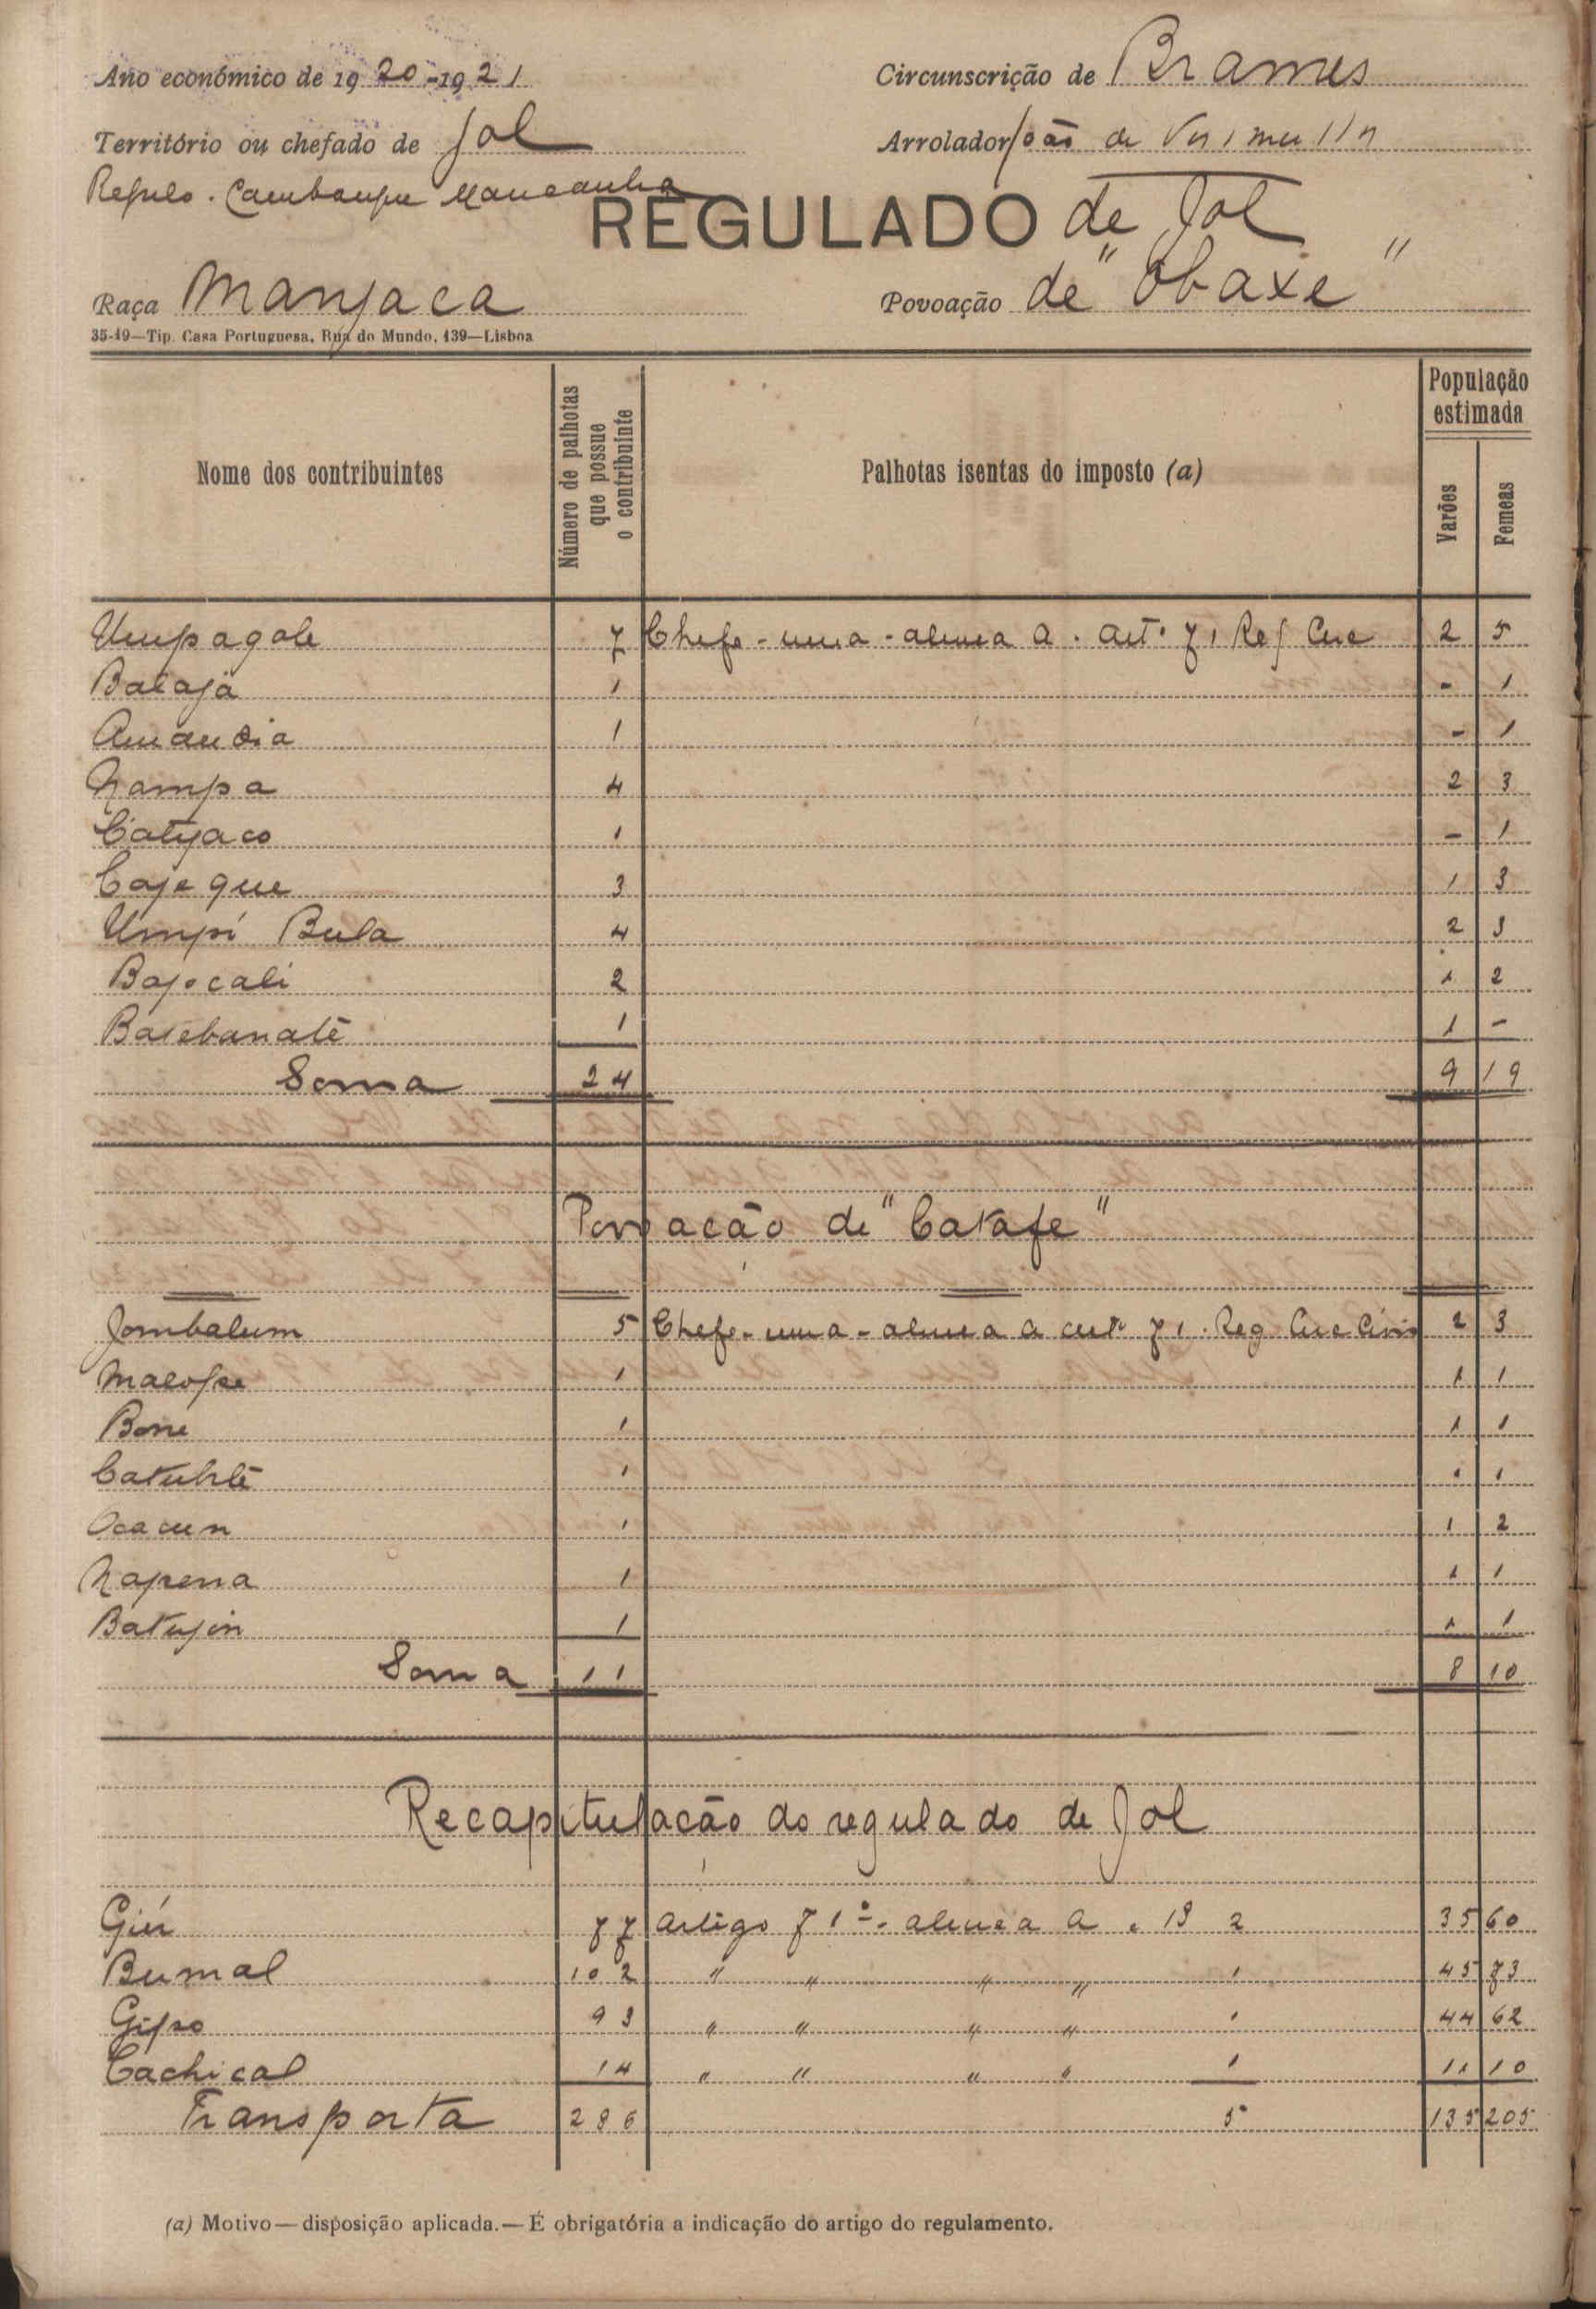 Ano económico de 1920-1921
Circunscrição de Brames
Território ou chefado de Jol
Arrolador João de
Regulo. Mancanha
REGULADO de Jol
Raça Manjaca
Povoação de "Obaxe"
35-19—Tip. Casa Portuguesa, Rua do Mundo, 139—Lisboa
Nome dos contribuintes
Número de palhotas que possue o contribuinte
Palhotas isentas do imposto (a)
População estimada
Varões
Femeas
Umpagole 7 Chefe - uma - alinea a. art. 71 Reg Circ 2 5
Bataja 1 - 1
Amandia 1 - 1
Nampa 4 2 3
Catyaco 1 - 1
Cajeque 3 1 3
Umpi Bula 4 2 3
Bajocali 2 1 2
Basebanatê 1 1 -
Soma 24 9 19
Povoacão de "Catafe"
Jombalum 5 Chefe - uma - alinea a art. 71. Reg Circ Civis 2 3
Malofse 1 1 1
Bone 1 1 1
Catuhlê 1 1 1
Ocacun 1 1 2
Napena 1 1 1
Batujin 1 1 1
Soma 11 8 10
Recapitulacão do regulado de Jol
77 artigo 71º - alinea a 2 35 60
Bumal 102 " " " " 1 45 73
Gipso 93 " " " " 1 44 62
Cachical 14 " " " " 1 11 10
Transporta 286 5 135 205
(a) Motivo — disposição aplicada. — É obrigatória a indicação do artigo do regulamento.